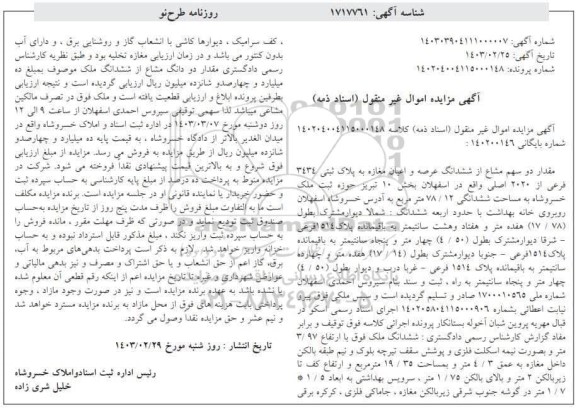 شناسه آگهی: ۱۷۱۷۷۶۱
روزنامه طرح‌نو
شماره آگهی: ۱۴۰۳۰۳۹۰۴۱۱۱۰۰۰۰۰۷
تاریخ آگهی: ۱۴۰۳/۰۲/۲۵
شماره پرونده: ۱۴۰۲۰۴۰۰۴۱۱۵۰۰۰۱۴۸
آگهی مزایده اموال غیر منقول (اسناد ذمه)
آگهی مزایده اموال غیر منقول (اسناد ذمه) کلاسه ۱۴۰۲۰۴۰۰۴۱۱۵۰۰۰۱۴۸
شماره بایگانی ۱۴۰۲۰۰۱۴۶:
مقدار دو سهم مشاع از ششدانگ عرصه و اعیان مغازه به پلاک ثبتی ۳۴۳۴
فرعی از ۲۰۲۰ اصلی واقع در اسفهلان بخش ۱۰ تبریز حوزه ثبت ملک
خسروشاه به مساحت ششدانگی ۷۸/۱۲ متر مربع به آدرس خسروشاه اسفهلان
روبروی خانه بهداشت با حدود اربعه ششدانگ : شمالا دیوارمشترک بطول
(۱۷/۷۸) هفده متر و هفتاد وهشت سانتیمتر به باقیمانده پلاک ۱۵۱۴ فرعی
- شرقا دیوارمشترک بطول (۴/۵۰) چهار متر و پنجاه سانتیمتر به باقیمانده
پلاک ۱۵۱۴ فرعی - جنوبا دیوارمشترک بطول (۱۷/۱۴) هفده متر و چهارده
سانتیمتر به باقیمانده پلاک ۱۵۱۴ فرعی - غربا درب و دیوار بطول (۴/۵۰)
چهار متر و پنجاه سانتیمتر به راه ، ثبت و سند بنام سیروس احمدی اسفهلان
شماره ملی ۱۷۰۰۰۱۰۵۶۵ صادر و تسلیم گردیده است و سپس ملک مزبور بین
نیابت اعطائی بشماره ۱۴۰۲۰۵۸۰۴۱۱۵۰۰۰۹۰۶ اجرای اسناد رسمی اسکو در
قبال مهریه پروین شبان آخوله بستانکار پرونده اجرائی کلاسه فوق توقیف و برابر
مفاد گزارش کارشناس رسمی دادگستری : ششدانگ ملک فوق با ارتفاع ۳/۹۷
متر و بصورت نیمه اسکلت فلزی و پوشش سقف تیرچه بلوک و نیم طبقه بالکن
داخل مغازه به عمق ۴/۳ متر و بمساحت ۱۹/۳۵ مترمربع و ارتفاع کف تا
زیربالکن ۲ متر و بالای بالکن ۱/۷۵ متر ، سرویس بهداشتی به ابعاد ۱/۵ *
۱/۷ متر در گوشه جنوب شرقی زیربالکن مغازه ، جاماکانی فلزی ، کرکره برقی
، کف سرامیک ، دیوارها کاشی با انشعاب گاز و روشنایی برق ، و دارای آب
بدون کنتور می باشد و در زمان ارزیابی مغازه تخلیه بود و طبق نظریه کارشناس
رسمی دادگستری مقدار دو دانگ مشاع از ششدانگ ملک موصوف بمبلغ ده
میلیارد و چهارصدو شانزده میلیون ریال ارزیابی گردیده است و نتیجه ارزیابی
بطرفین پرونده ابلاغ و ارزیابی قطعیت یافته است و ملک فوق در تصرف مالکین
مشاعی میباشد لذا سهمی توقیفی سیروس احمدی اسفهلان از ساعت ۹ الی ۱۲
روز دوشنبه مورخ ۱۴۰۳/۰۳/۰۷ در اداره ثبت اسناد و املاک خسروشاه واقع در
میدان الغدیر بالاتر از دادگاه خسروشاه ، به قیمت پایه ده میلیارد و چهارصدو
شانزده میلیون ریال از طریق مزایده به فروش می رسد. مزایده از مبلغ ارزیابی
فوق شروع و به بالاترین قیمت پیشنهادی نقدا فروخته می شود. شرکت در
مزایده منوط به پرداخت ده درصد از مبلغ پایه کارشناسی به حساب سپرده ثبت
و حضور خریدار یا نماینده قانونی او در جلسه مزایده است. برنده مزایده مکلف
است ما به التفاوت مبلغ فروش را ظرف مدت پنج روز از تاریخ مزایده به‌حساب
صندوق ثبت تودیع نماید و در صورتی که ظرف مهلت مقرر ، مانده فروش را
به حساب سپرده ثبت واریز نکند ، مبلغ مذکور قابل استرداد نبوده و به حساب
خزانه واریز خواهد شد. لازم به ذکر است پرداخت بدهی‌های مربوط به آب،
برق، گاز اعم از حق انشعاب و یا حق اشتراک و مصرف و نیز بدهی مالیاتی و
عوارض شهرداری و غیره تا تاریخ مزایده اعم از اینکه رقم قطعی آن معلوم شده
یا نشده باشد به عهده برنده مزایده است و نیز در صورت وجود مازاد ، وجوه
پرداختی بابت هزینه های فوق از محل مازاد به برنده مزایده مسترد خواهد شد
و نیم عشر و حق مزایده نقدا وصول می گردد.
تاریخ انتشار : روز شنبه مورخ ۱۴۰۳/۰۲/۲۹
رئیس اداره ثبت اسنادواملاک خسروشاه
خلیل شری زاده